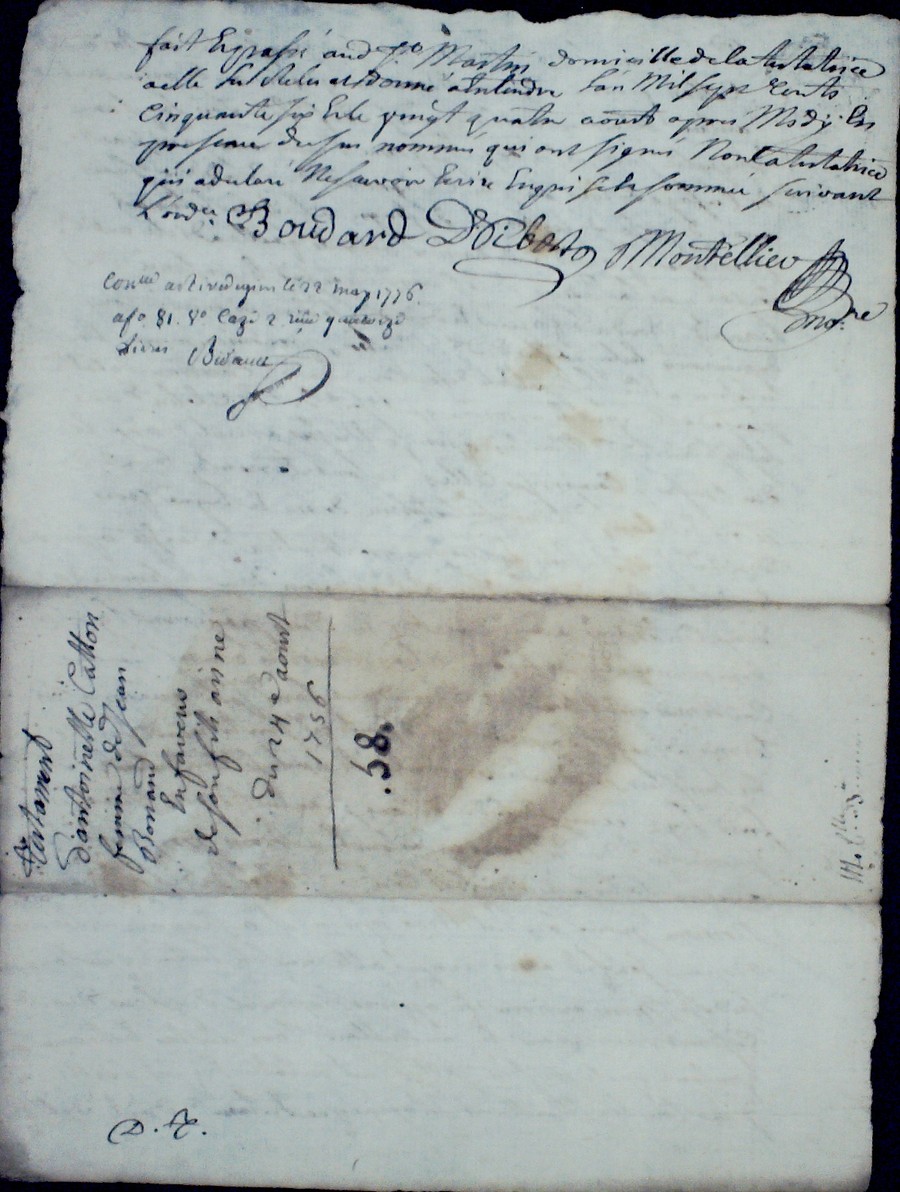 fait Et passé aud. St Martin domicille de la testatrice
a elle lu releu et donné a entendre l'an Mil sept cents
cinquante six Et le vingt quatre aoust apres Mydy. En
presence des sus nommés qui ont signés Non la testatrice
qui a declaré Ne savoir Ecrire Enquise Et sommée suivant
l'ord.
Boudard Montellier
1776
fo 81. Vo Caze 2 reçu quatorze
livres
Testament
d'antoinette Catton
femme de Jean
Bonand
En faveur
de son fils aisne
du 24e aoust
1756
58.
D. T.